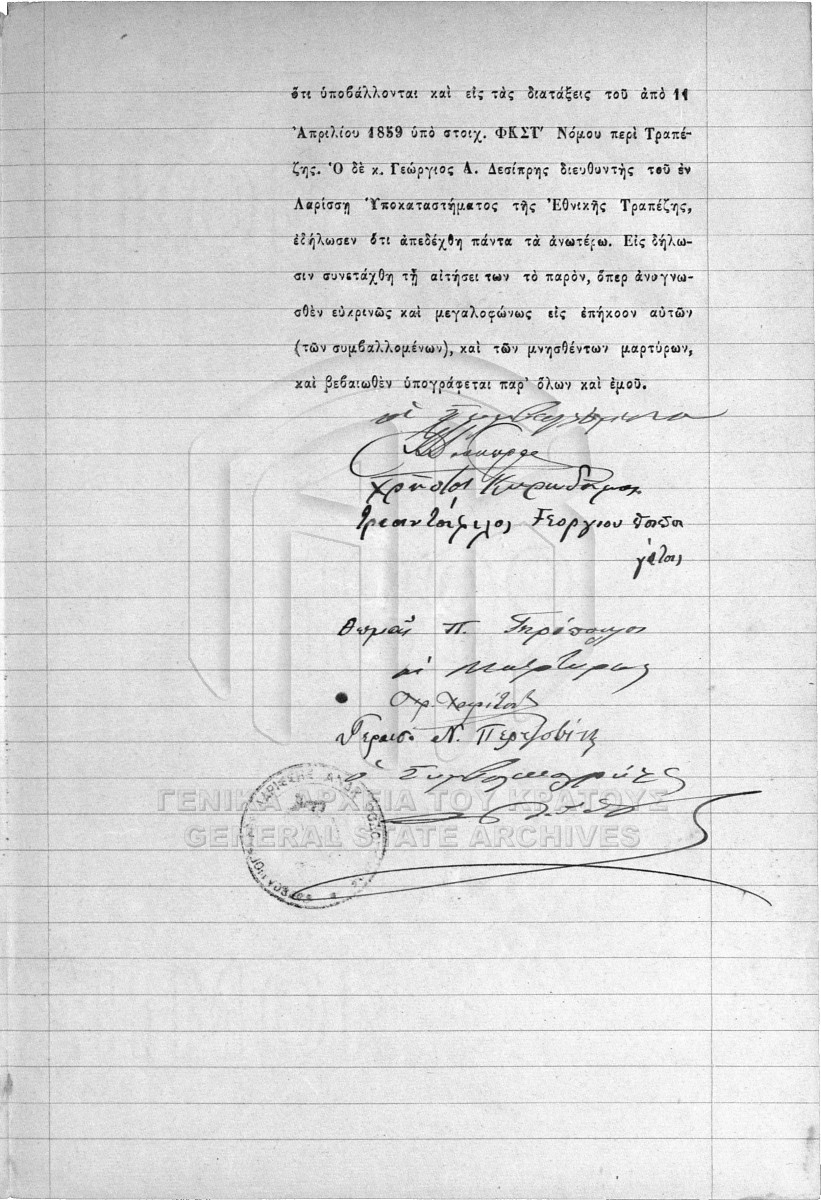 ὅτι ὑποβάλλονται καὶ εἰς τὰς διατάξεις τοῦ ἀπὸ 11
Ἀπριλίου 1859 ὑπὸ στοιχ. ΦΚΣΤ' Νόμου περὶ Τραπέ-
ζης. Ὁ δὲ κ. Γεώργιος Α. Δεσίπρης διευθυντὴς τοῦ ἐν
Λαρίσσῃ Ὑποκαταστήματος τῆς Ἐθνικῆς Τραπέζης,
ἐδήλωσεν ὅτι ἀπεδέχθη πάντα τὰ ἀνωτέρω. Εἰς δήλω-
σιν συνετάχθη τῇ αἰτήσει των τὸ παρὸν, ὅπερ ἀναγνω-
σθὲν εὐκρινῶς καὶ μεγαλοφώνως εἰς ἐπήκοον αὐτῶν
(τῶν συμβαλλομένων), καὶ τῶν μνησθέντων μαρτύρων,
καὶ βεβαιωθὲν ὑπογράφεται παρ' ὅλων καὶ ἐμοῦ.
οἱ
Χρῆστος
Γεοργίου
Π.
οἱ Μάρτυρες
Ν.
ὁ Συμβολαιογράφος
ΓΕΝΙΚΑ ΑΡΧΕΙΑ ΤΟΥ ΚΡΑΤΟΥΣ
GENERAL STATE ARCHIVES